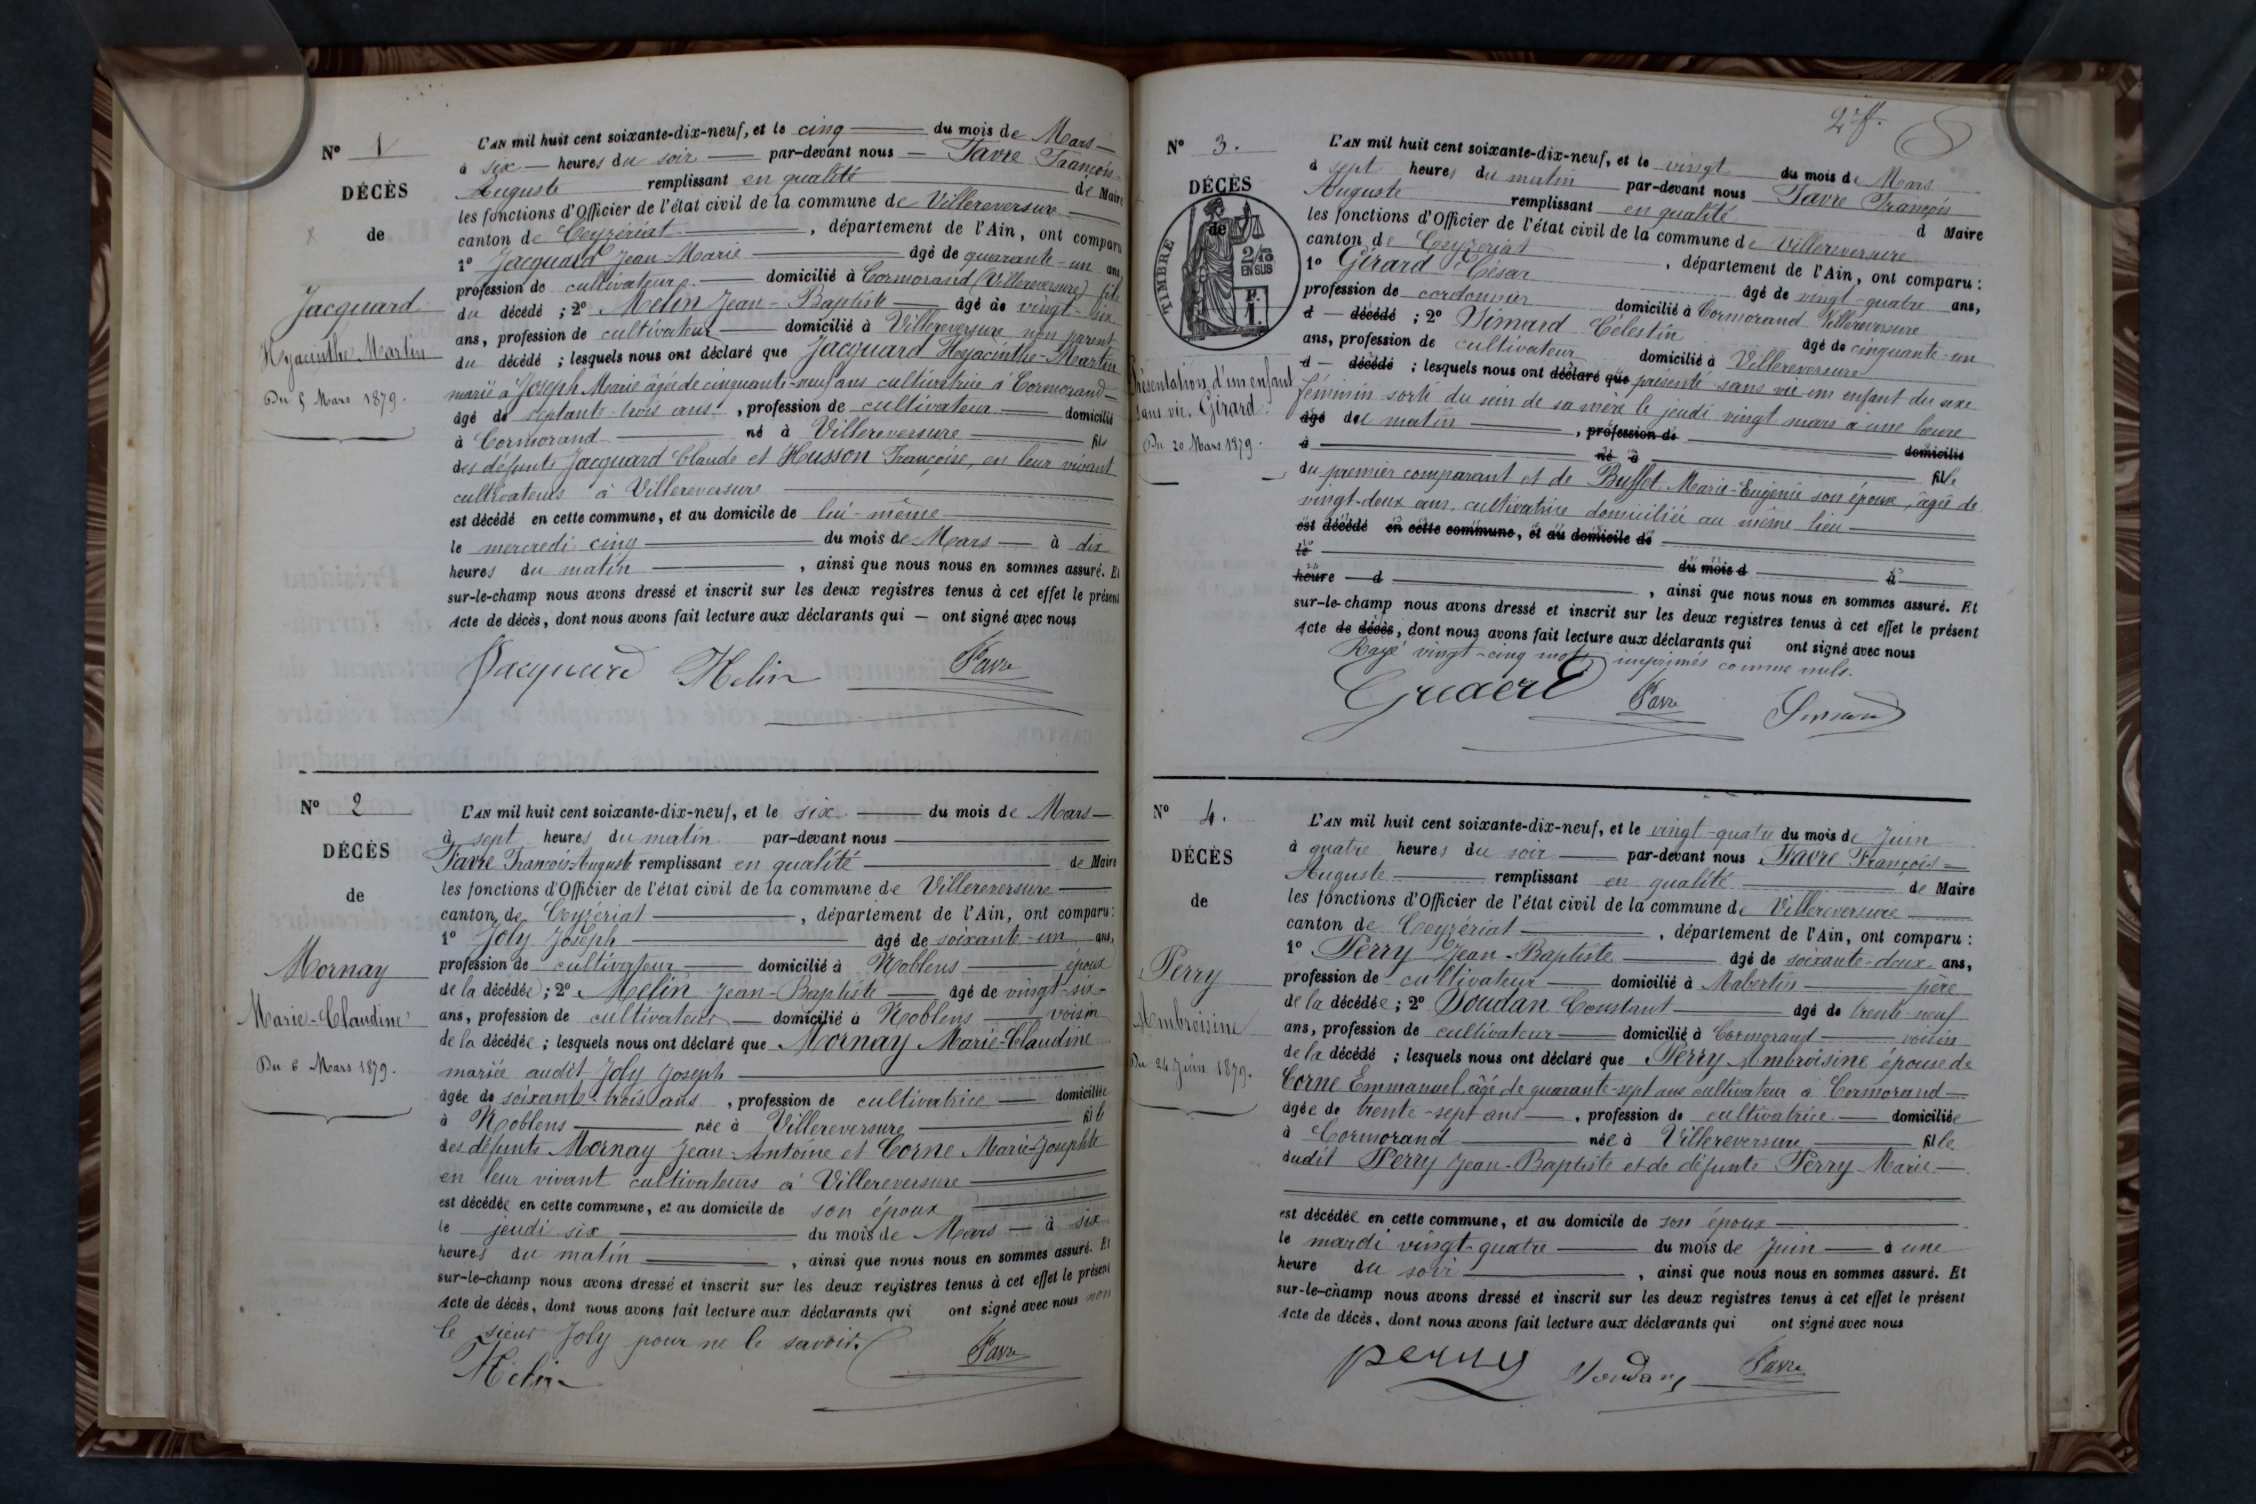 N° 1
DÉCÈS
de
Jacquard
Hyacinthe Martin
Du 5 Mars 1879.
L'AN mil huit cent soixante-dix-neuf, et le cinq du mois de Mars
à six heures du soir par-devant nous Favre François
Auguste remplissant en qualité de Maire
les fonctions d'Officier de l'état civil de la commune de Villereversure
canton de Ceyzériat, département de l'Ain, ont comparu
1° Jacquard Jean-Marie âgé de quarante-un ans,
profession de cultivateur domicilié à Cormorand (Villereversure) fils
du décédé ; 2° Melin Jean-Baptiste âgé de vingt-six
ans, profession de cultivateur domicilié à Villereversure non parent
du décédé ; lesquels nous ont déclaré que Jacquard Hyacinthe-Martin
marié à Joseph Marie âgée de cinquante-neuf ans cultivatrice à Cormorand
âgé de septante-trois ans, profession de cultivateur domicilié
à Cormorand né à Villereversure fils
des défunts Jacquard Claude et Husson Françoise, en leur vivant
cultivateurs à Villereversure
est décédé en cette commune, et au domicile de lui-même
le mercredi cinq du mois de Mars à dix
heures du matin, ainsi que nous nous en sommes assuré. Et
sur-le-champ nous avons dressé et inscrit sur les deux registres tenus à cet effet le présent
Acte de décès, dont nous avons fait lecture aux déclarants qui — ont signé avec nous
Jacquard Melin Favre
N° 2
DÉCÈS
de
Mornay
Marie-Claudine
Du 6 Mars 1879.
L'AN mil huit cent soixante-dix-neuf, et le six du mois de Mars
à sept heures du matin par-devant nous
Favre François-Auguste remplissant en qualité de Maire
les fonctions d'Officier de l'état civil de la commune de Villereversure
canton de Ceyzériat, département de l'Ain, ont comparu :
1° Joly Joseph âgé de soixante-un ans,
profession de cultivateur domicilié à Noblens époux
de la décédée ; 2° Melin Jean-Baptiste âgé de vingt-six
ans, profession de cultivateur domicilié à Noblens voisin
de la décédée ; lesquels nous ont déclaré que Mornay Marie-Claudine
mariée audit Joly Joseph
âgée de soixante-trois ans, profession de cultivatrice domiciliée
à Noblens née à Villereversure fille
des défunts Mornay Jean-Antoine et Corne Marie-Josephte
en leur vivant cultivateurs à Villereversure
est décédée en cette commune, et au domicile de son époux
le jeudi six du mois de Mars à six
heures du matin, ainsi que nous nous en sommes assuré. Et
sur-le-champ nous avons dressé et inscrit sur les deux registres tenus à cet effet le présent
Acte de décès, dont nous avons fait lecture aux déclarants qui ont signé avec nous non
le sieur Joly pour ne le savoir.
Melin Favre
2e f.
N° 3.
DÉCÈS
de
TIMBRE
2/10
EN SUS
Présentation d'un enfant
sans vie. Girard.
Du 20 Mars 1879.
L'AN mil huit cent soixante-dix-neuf, et le vingt du mois de Mars
à sept heures du matin par-devant nous Favre François
Auguste remplissant en qualité d Maire
les fonctions d'Officier de l'état civil de la commune de Villereversure
canton de Ceyzeriat, département de l'Ain, ont comparu :
1° Girard César âgé de vingt-quatre ans,
profession de cordonnier domicilié à Cormorand Villereversure
d décédé ; 2° Simard Célestin âgé de cinquante-un
ans, profession de cultivateur domicilié à Villereversure
d décédé ; lesquels nous ont déclaré que présenté sans vie un enfant du sexe
féminin sorti du sein de sa mère le jeudi vingt mars à une heure
âgé de du matin, profession de domicilié
à né à fille
du premier comparant et de Buffet Marie-Eugénie son épouse, âgée de
vingt-deux ans, cultivatrice domiciliée au même lieu
est décédé en cette commune, et au domicile de
le du mois d à
heure d, ainsi que nous nous en sommes assuré. Et
sur-le-champ nous avons dressé et inscrit sur les deux registres tenus à cet effet le présent
Acte de décès, dont nous avons fait lecture aux déclarants qui ont signé avec nous
Rayé vingt-cinq mots imprimés comme nuls.
Girard Favre Simard
N° 4.
DÉCÈS
de
Perry
Ambroisine
Du 24 Juin 1879.
L'AN mil huit cent soixante-dix-neuf, et le vingt-quatre du mois de Juin
à quatre heures du soir par-devant nous Favre François
Auguste remplissant en qualité de Maire
les fonctions d'Officier de l'état civil de la commune de Villereversure
canton de Ceyzériat, département de l'Ain, ont comparu :
1° Perry Jean-Baptiste âgé de soixante-deux ans,
profession de cultivateur domicilié à Mabertin père
de la décédée ; 2° Soudan Constant âgé de trente-neuf
ans, profession de cultivateur domicilié à Cormorand voisin
de la décédé ; lesquels nous ont déclaré que Perry Ambroisine épouse de
Corne Emmanuel âgé de quarante-sept ans cultivateur à Cormorand
âgée de trente-sept ans, profession de cultivatrice domiciliée
à Cormorand née à Villereversure fille
dudit Perry Jean-Baptiste et de défunte Perry Marie
est décédée en cette commune, et au domicile de son époux
le mardi vingt-quatre du mois de Juin à une
heure du soir, ainsi que nous nous en sommes assuré. Et
sur-le-champ nous avons dressé et inscrit sur les deux registres tenus à cet effet le présent
Acte de décès, dont nous avons fait lecture aux déclarants qui ont signé avec nous
perry Soudan Favre